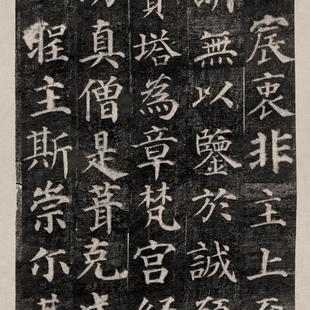 宸衷非主上
無以鑒於誠
塔為章梵宮
真僧是葺克
聖主斯崇尔